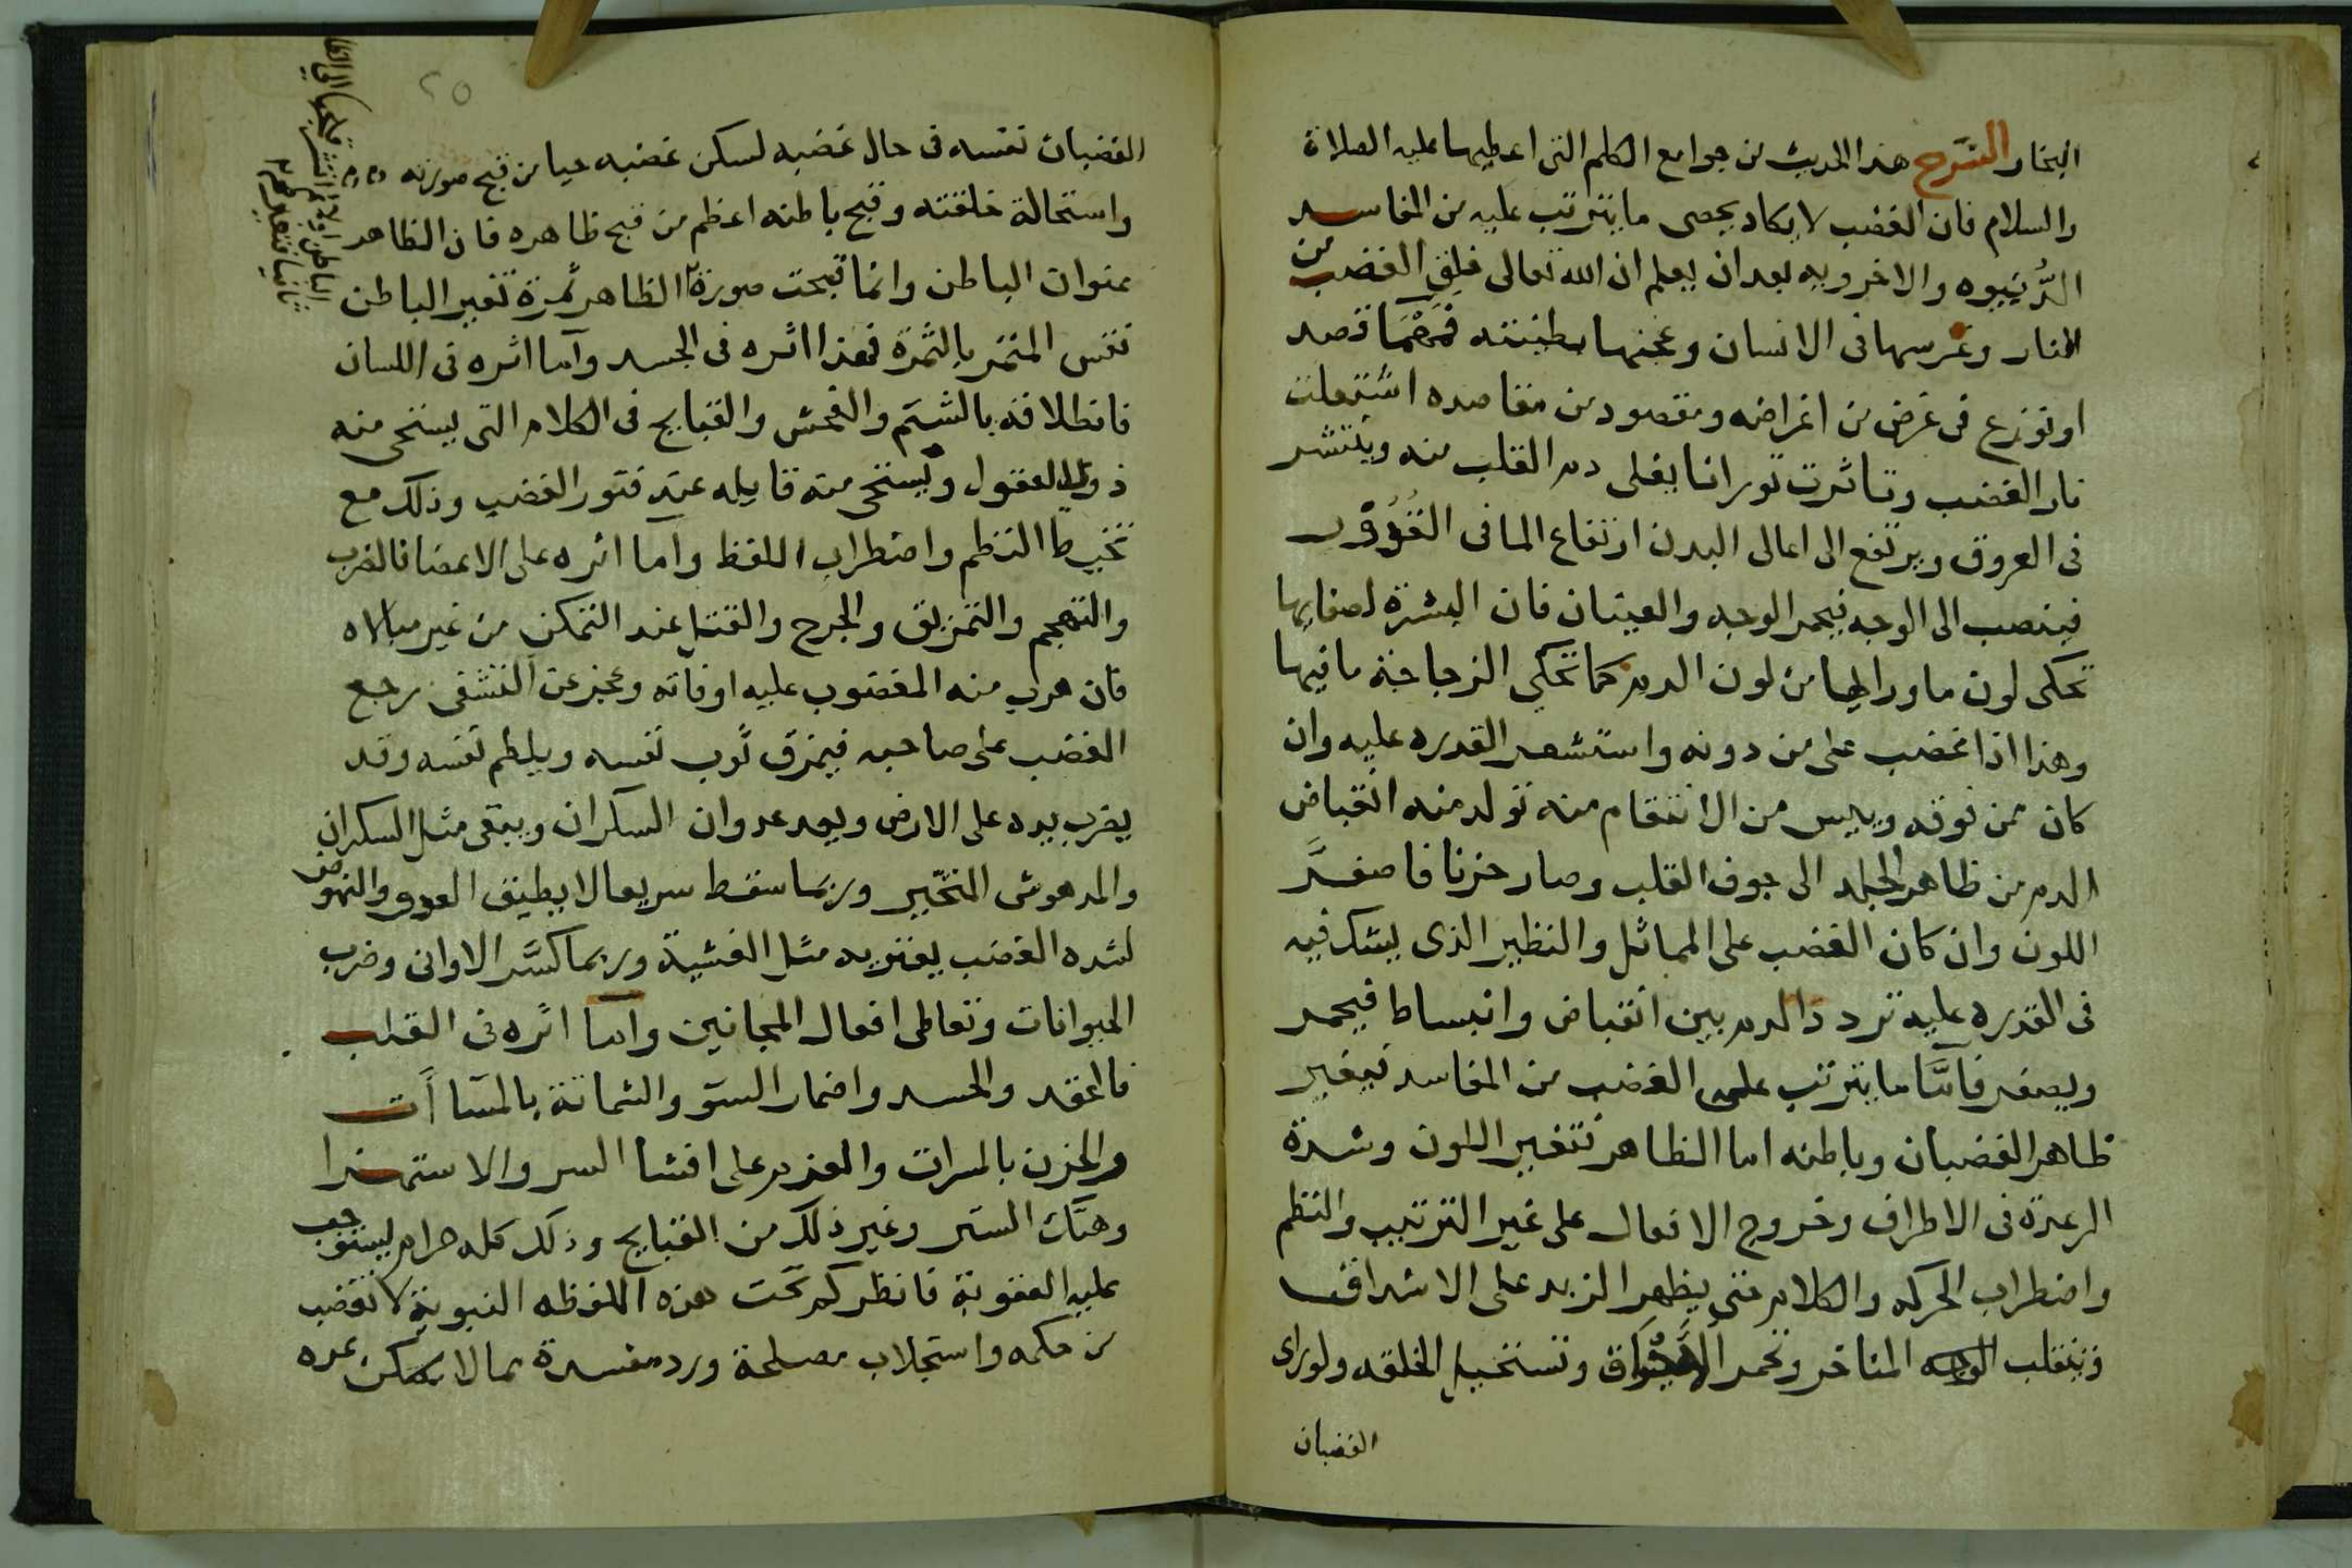 البخار الشرح هذا الحديث من جوامع الكلم التى اعطيها عليه الصلاة
والسلام فان الغضب لا يكاد يحصى ما يترتب عليه من المفاسد
الدُّنيويه والاخرويه بعد ان يعلم ان الله تعالى خلق الغضب من
النار وغرسها فى الانسان وعجنها بطينته فمهما قصد
او نوزع فى غرض من اغراضه ومقصود من مقاصده اشتعلت
نار الغضب وتاثرت ثورانا يغلى دم القلب منه وينتشر
فى العروق ويرتفع الى اعالى البدن ارتفاع الما فى
فينصب الى الوجه فيحمر الوجه والعينان فان البشرة لصفايها
تحكى لون ما وراها من لون الدم كما تحكى الزجاجة ما فيها
وهذا اذا غضب على من دونه واستشعر القدره عليه وان
كان ممن فوقه وييس من الانتقام منه تولد منه انقباض
الدم من ظاهر الجلد الى جوف القلب وصار حزنا فاصفرَّ
اللون وان كان الغضب على المماثل والنظير الذى يشك فيه
فى القدره عليه تردد الدم بين انقباض وانبساط فيحمر
ويصفر فامَّا ما يترتب على الغضب من المفاسد فيغير
ظاهر الغضبان وباطنه اما الظاهر فتغير اللون وشدة
الرعدة فى الاطراف وخروج الافعال على غير الترتيب والنظم
واضطراب الحركه والكلام حتى يظهر الزبد على الاشداق
وتنقلب المناخر وتحمر الاحداق وتستحيل الخلقه ولو راى
الغضبان
٢٥
الغضبان نفسه فى حال غضبه لسكن غضبه حيا من قبح صورته
واستحالة خلقته وقبح باطنه اعظم من قبح ظاهره فان الظاهر
عنوان الباطن وانما قبحت صورة الظاهر ثمرة تغير الباطن
نفس المثمر بالثمرة فهذا اثره فى الجسد وآما اثره فى اللسان
فانطلاقه بالشتم والفحش والقبايح فى الكلام التى يستحى منه
ذوى العقول ويستحى منه قايله عند فتور الغضب وذلك مع
تخبيط النظم واضطراب اللفظ وآما اثره على الاعضا فالضرب
والتهجم والتمزيق والجرح والقتل عند التمكن من غير مبالاه
فان هرب منه المغضوب عليه او فاته وعجز عن التشفى رجع
الغضب على صاحبه فيمزق ثوب نفسه ويلطم نفسه وقد
يضرب بيده على الارض ويعد عدوان السكران ويبقى مثل السكران
والمدهوش المتحير وربما سقط سريعا لا يطيق العدو والنهوض
لشده الغضب يعتريه مثل الغشية وربما كسَّر الاوانى وضرب
الحيوانات وتعاطى افعال المجانين وآما اثره فى القلب
فالحقد والحسد واضمار السو والشماتة بالمساآت
والحزن بالمسرات والعزم على افشا السر والاستهزا
وهتك الستر وغير ذلك من القبايح وذلك كله حرام يستوجب
عليه العقوبة فانظر كم تحت هذه اللفظه النبوية لا تغضب
من حكمه واستجلاب مصلحة ورد مفسدة مما لا يمكن عده